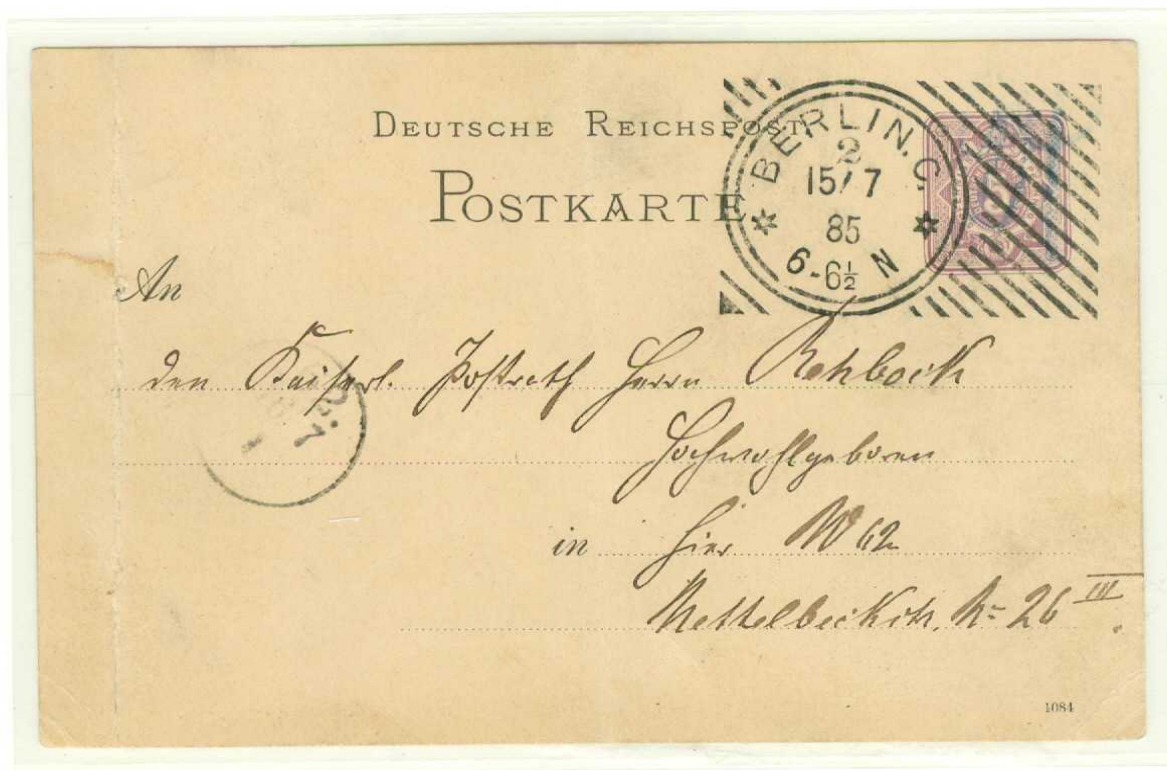 DEUTSCHE REICHSPOST
POSTKARTE
BERLIN. C.
2
15/7
85
6-6½ N
An
den Kaiserl. Postrath Herrn Rehbock
Hochwohlgeboren
in hier W 62
Nettelbeckstr. No 26 III.
1084